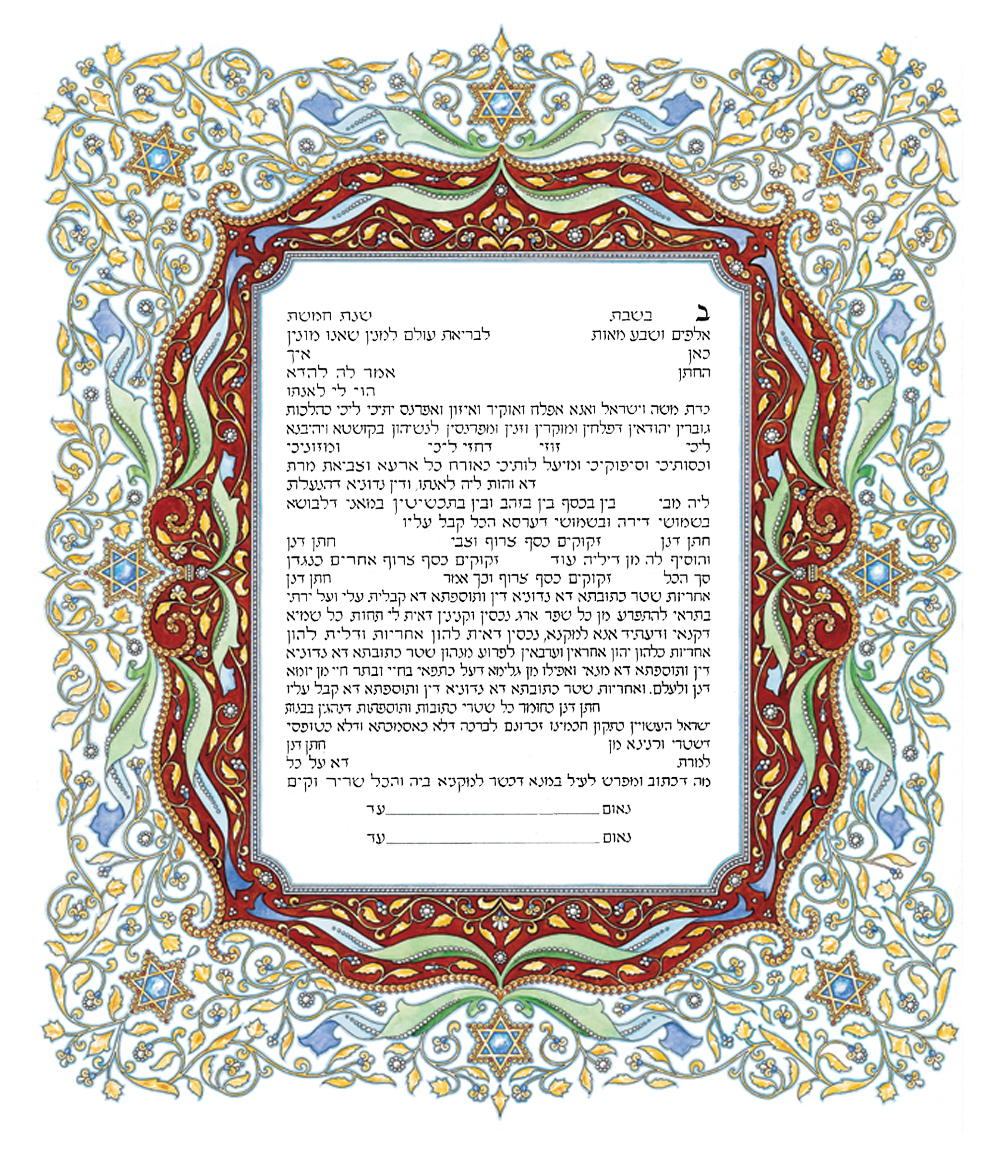 ב בשבת שנת חמשת
אלפים ושבע מאות לבריאת עולם למנין שאנו מונין
כאן איך
החתן אמר לה להדא
הוי לי לאנתו
כדת משה וישראל ואנא אפלח ואוקיר ואיזון ואפרנס יתיכי ליכי כהלכות
גוברין יהודאין דפלחין ומוקרין וזנין ומפרנסין לנשיהון בקושטא ויהיבנא
ליכי זוזי דחזי ליכי ומזוניכי
וכסותיכי וסיפוקיכי ומיעל לותיכי כאורח כל ארעא וצביאת מרת
דא והות ליה לאנתו, ודין נדוניא דהנעלת
ליה מבי בין בכסף בין בזהב ובין בתכשיטין במאני דלבושא
בשמושי דירה ובשמושי דערסא הכל קבל עליו
חתן דנן זקוקים כסף צרוף וצבי חתן דנן
והוסיף לה מן דיליה עוד זקוקים כסף צרוף אחרים כנגדן
סך הכל זקוקים כסף צרוף וכך אמר חתן דנן
אחריות שטר כתובתא דא נדוניא דין ותוספתא דא קבלית עלי ועל ירתי
בתראי להתפרע מן כל שפר ארג נכסין וקנינין דאית לי תחות כל שמיא
דקנאי ודעתיד אנא למקנא, נכסין דאית להון אחריות ודלית להון
אחריות כלהון יהון אחראין וערבאין לפרוע מנהון שטר כתובתא דא נדוניא
דין ותוספתא דא מנאי ואפילו מן גלימא דעל כתפאי בחיי ובתר חיי מן יומא
דנן ולעלם. ואחריות שטר כתובתא דא נדוניא דין ותוספתא דא קבל עליו
חתן דנן כחומר כל שטרי כתובות ותוספתות דנהגין בבנות
ישראל העשויין כתקון חכמינו זכרונם לברכה דלא כאסמכתא ודלא כטופסי
דשטרי וקנינא מן חתן דנן
למרת דא על כל
מה דכתוב ומפרש לעיל במנא דכשר למקניא ביה והכל שריר וקים
נאום עד
נאום עד